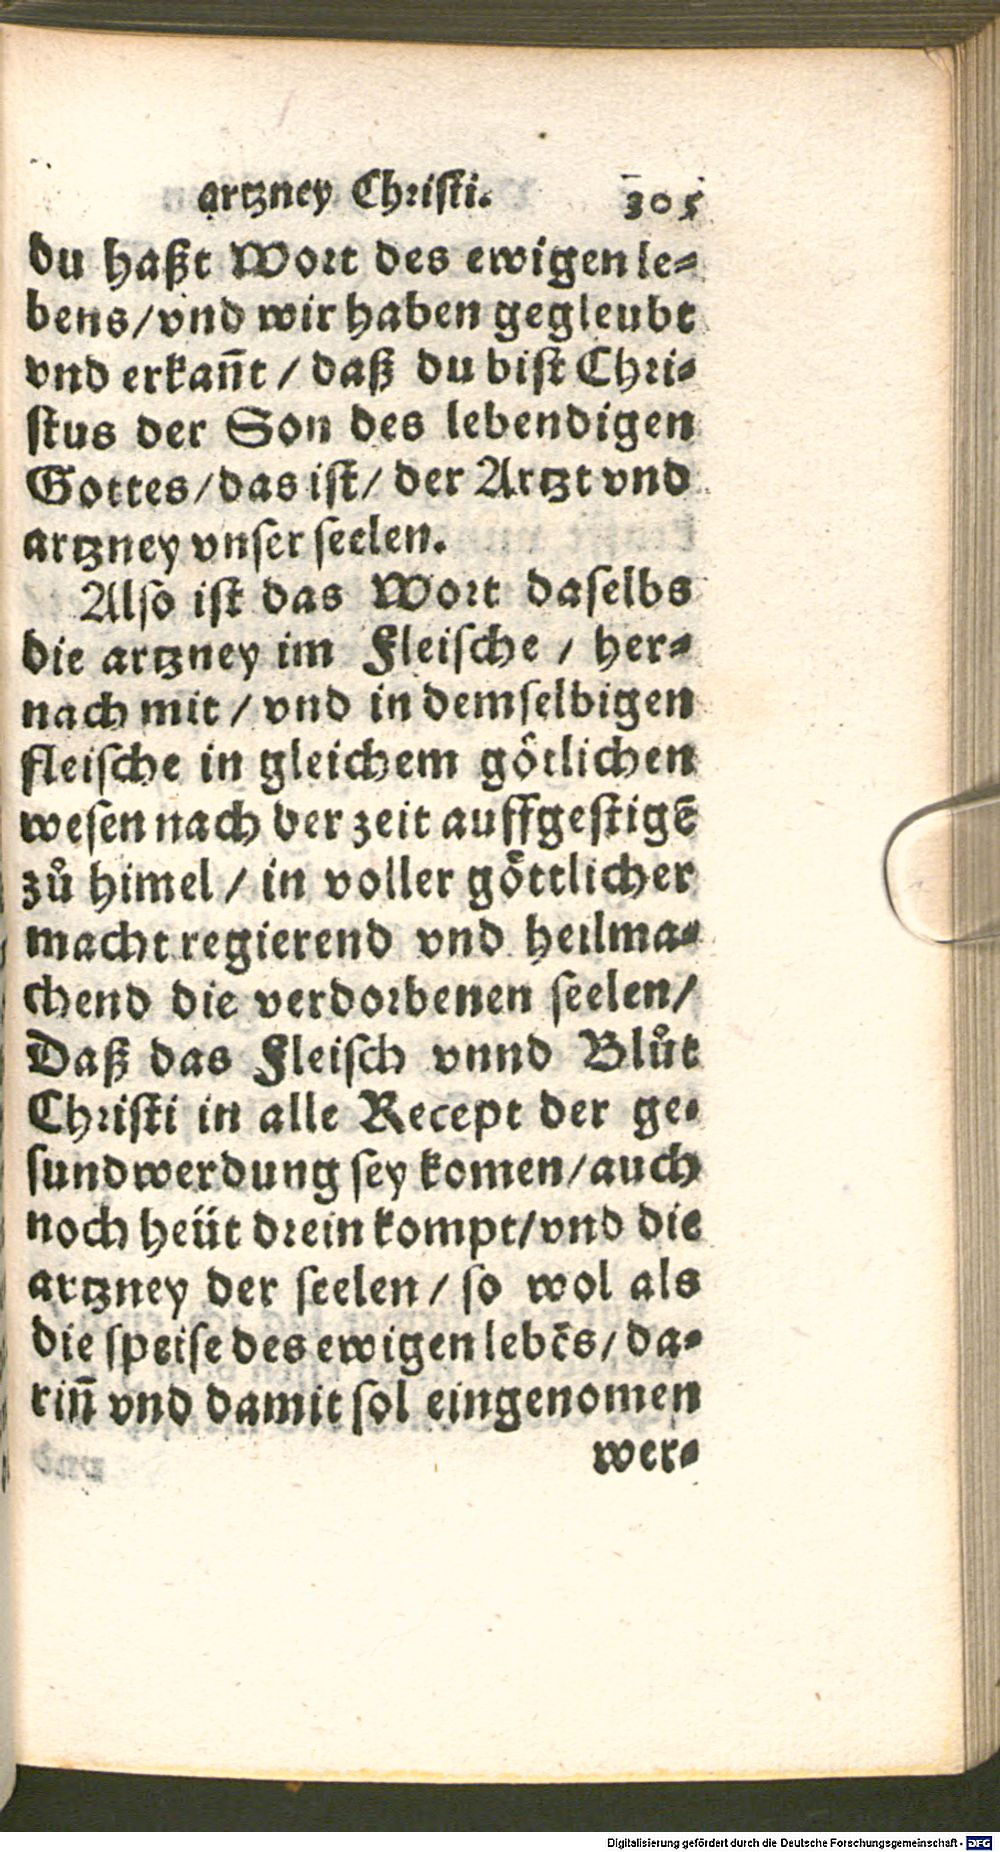 artzney Christi. 305
du haßt Wort des ewigen le-
bens/vnd wir haben gegleubt
vnd erkañt / daß du bist Chri-
stus der Son des lebendigen
Gottes/das ist/ der Artzt vnd
artzney vnser seelen.
Also ist das Wort daselbs
die artzney im Fleische / her-
nach mit / vnd in demselbigen
fleische in gleichem götlichen
wesen nach der zeit auffgestigẽ
zů himel / in voller göttlicher
macht regierend vnd heilma-
chend die verdorbenen seelen/
Daß das Fleisch vnnd Blůt
Christi in alle Recept der ge-
sundwerdung sey komen/auch
noch heüt drein kompt/vnd die
artzney der seelen / so wol als
die speise des ewigen lebẽs/ da-
riñ vnd damit sol eingenomen
wer-
Digitalisierung gefördert durch die Deutsche Forschungsgemeinschaft - DFG